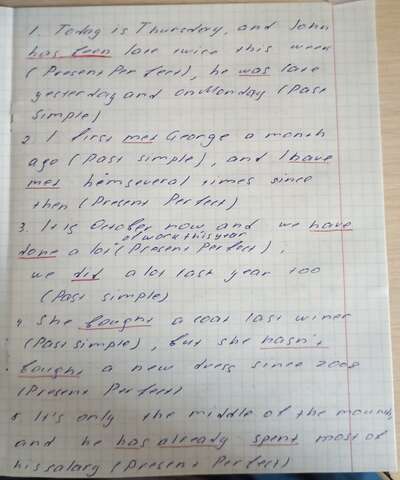 1. Today is Thursday, and John
has been late twice this week
(Present Perfect), he was late
yesterday and on Monday (Past
Simple)
2. I first met George a month
ago (Past simple), and I have
met him several times since
then (Present Perfect)
3. It is October now and we have
done a lot of work this year (Present Perfect),
we did a lot last year too
(Past simple)
4. She bought a coat last winer
(Past simple), but she hasn't
bought a new dress since 2008
(Present Perfect)
5 It's only the middle of the mounth
and he has already spent most of
his salary (Present Perfect)